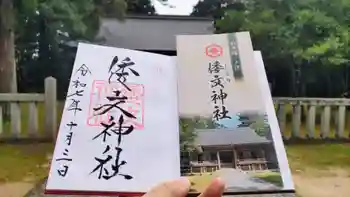 倭文神社
令和七年十月三日
倭文神社